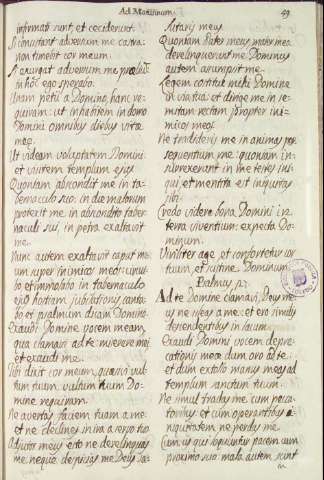 Ad Matutinum.
49
infirmati sunt, et ceciderunt.
Si consistant adversum me castra:
non timebit cor meum.
Si exurgat adversum me prœliũ:
in hoc ego sperabo.
Unam petii a Domino, hanc re-
quiram: ut inhabitem in domo
Domini omnibus diebus vitæ
meæ.
Ut videam voluptatem Domini:
et visitem templum ejus
Quoniam abscondit me in ta-
bernaculo suo: in die malorum
protexit me in abscondito taber-
naculi sui, in petra exaltavit
me.
Nunc autem exaltavit caput me-
um super inimicos meos:
et immolabo in tabernaculo
ejus hostiam jubilationis canta-
bo et psalmum dicam Domino.
Exaudi Domine vocem meam,
qua clamavi ad te miserere mei
et exaudi me.
Tibi dixit cor meum,
tuam: vultum tuum Do-
mine requiram.
Ne avertas faciem tuam a me:
et ne declines in ira a servo tuo
Adjutor meus esto ne derelinquas
me, neque despicias me Deus sa-
lutaris meus
Quoniam Pater meus mater mea
dereliquerunt me Dominus
autem assumpsit me.
Legem constitue mihi Domine
in via tua: et dirige me in se-
mitam rectam propter ini-
micos meos
Ne tradideris me in animas per-
sequentium me: quoniam in-
surrexerunt in me testes ini-
qui, et mentita est iniquitas
sibi
Credo videre bona Domini in
terra viventium: expecta Do-
minum.
Viriliter age et confortetur cor
tuum, et sustine Dominum.
Psalmus
Ad te Domine clamavi, Deus me-
us ne sileas a me: et ero similis
descendentibus in lacum
Exaudi Domini vocem depre-
cationis meæ dum oro ad te:
et dum extollo manus meas ad
templum sanctum tuum:
Ne simul tradas me cum pecca-
toribus et cum operantibus i-
niquitatem ne perdas me
Cum iis qui loquuntur pacem cum
proximo suo mala autem sunt
in